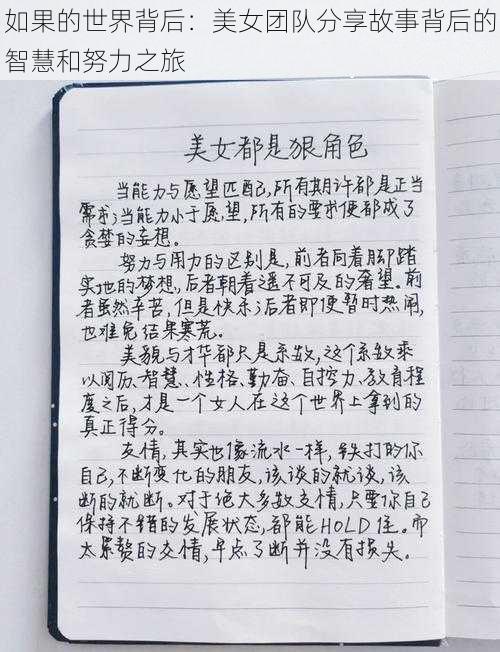 如果的世界背后：美女团队分享故事背后的
智慧和努力之旅
美女都是狠角色
当能力与愿望匹配,所有期许都是正当
需求;当能力小于愿望,所有的要求便都成了
贪婪的妄想。
努力与用力的区别是,前者向着脚踏
实地的梦想,后者朝着遥不可及的奢望。前
者虽然辛苦,但是快乐;后者即便暂时热闹,
也难免结果寒荒。
美貌与才华都只是系数,这个系数乘
以阅历、智慧、性格、勤奋、自控力、教育程
度之后,才是一个女人在这个世界上拿到的
真正得分。
友情,其实也像流水一样,铁打的你
自己,不断变化的朋友,该谈的就谈,该
断的就断。对于绝大多数友情,只要你自己
保持不错的发展状态,都能HOLD住。而
太累赘的交情,早点了断并没有损失。